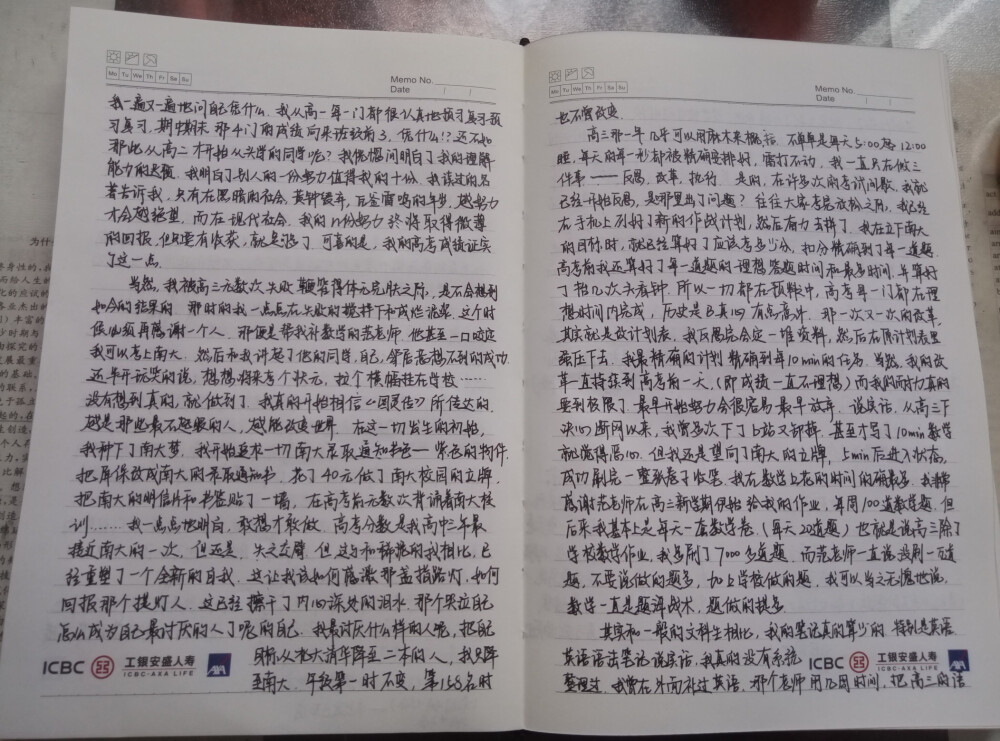 Mo Tu We Th Fr Sa Su
Memo No.
Date / /
我一遍又一遍地问自己凭什么。我从高一每一门都很认真地预习复习预
习复习,期中期末那4门的成绩向来该较前3,凭什么!?还不如
那些从高二才开始从头学的同学呢?我恍惚间明白了我的理解
能力的迟缓。我明白了别人的一份努力值得我的十份。我读过的名
著告诉我,只有在黑暗的社会,黄钟毁弃,瓦釜雷鸣的年岁,越努力
才会越绝望,而在现代社会,我的n份努力终将取得微薄
的回报。但只要有收获,就是强了。可喜的是,我的高考成绩证实
了这一点。
当然,我被高三无数次失败鞭笞得体无完肤之际,是不会想到
如今的结果的。那时的我一点点在失败的搅拌下和成些泥浆。这个时
候必须再感谢一个人。那便是带我补数学的范老师。他甚至一口咬定
我可以考上南大。然后和我讲起了他的同学,自己,邻居意想不到的成功。
还半开玩笑的说,想想将来考个状元,拉个横幅挂在学校……
没有想到真的,就做到了。我真的开始相信《国灵传》所传达的,
越是那些最不起眼的人,越能改变世界。在这一切发生的初始,
我种下了南大梦。我开始追求一切南大录取通知书色——紫色的物件,
把屏保改成南大的录取通知书。花了40元做了南大校园的立牌,
把南大的明信片和书签贴了一墙,在高考前无数次背诵着南大校
训……我一点点地明白,敢想才敢做。高考分数是我高中三年最
接近南大的一次,但还是,失之交臂。但这与和稀泥的我相比,已
经重塑了一个全新的自我。这让我该如何感激那盏指路灯,如何
回报那个提灯人。这已经擦干了内心深处的泪水,那个哭泣自己
怎么成为自己最讨厌的人了呢的自己。我最讨厌什么样的人呢,把自己
目标从北大清华降至二本的人,我只降
至南大。年级第一时不变,第158名时
ICBC 工银安盛人寿 ICBC-AXA LIFE AXA
Mo Tu We Th Fr Sa Su
Memo No.
Date / /
也不曾改变。
高三那一年几乎可以用麻木来概括。不单单是每天5:00起12:00
睡,每天的每一秒都被精确安排好,雷打不动,我一直只在做三
件事——反思,改革,执行。是的,在许多次的考试间歇,我就
已经开始反思,是哪里出了问题?往往大家考完放松之际,我已经
在手机上列好了新的作战计划,然后奋力去拼了。我在立下南大
的目标时,就已经算好了应该考多少分,扣分精确到了每一道题。
高考前我还算好了每一道题的理想答题时间和最多时间,并算好
了抬几次头看钟,所以一切都在预料中,高考每一门都在理
想时间内完成,历史是日真的有点高沛。那一次又一次的改革,
其实就是改计划表,我反思完会定一堆资料,然后在原计划表里
强压下去。我最精确的计划精确到每10min的任务。当然,我的改
革一直持续到高考前一天。(即成绩一直不理想)而我的耐力真的
要到极限了。最早开始努力会很容易最早放弃。说实话,从高三下
决心断网以来,我曾多次下了b站又卸掉,甚至才写了10min数学
就觉得恶心。但我还是望向了南大的立牌,5min后进入状态,
成功刷完一整张卷子收笔。我在数学上花的时间的确最多。我非常
感谢范老师在高三新学期伊始给我的作业,每周100道数学题。但
后来我基本上是每天一套数学卷(每天20道题)也就是说高三除了
学校数学作业,我多刷了7000多道题。而范老师一直说没刷一万道
题,不要说做的题多,加上学校做的题,我可以当之无愧地说,
数学一直是题海战术,题做的挺多。
其实和一般的文科生相比,我的笔记真的算少的。特别是英语。
英语语法笔记说实话,我真的没有系统
整理过。我曾在外面补过英语。那个老师用几周时间,把高三的语
ICBC 工银安盛人寿 ICBC-AXA LIFE AXA